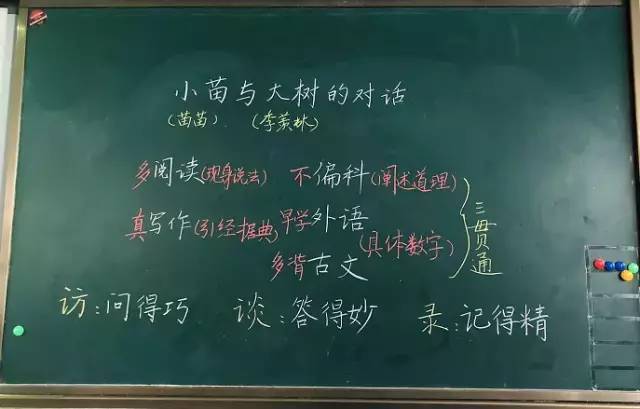 小苗与大树的对话
(苗苗) (季羡林)
多阅读(现身说法) 不偏科(阐述道理)
真写作(引经据典)早学外语
多背古文 (具体数字)
三贯通
访:问得巧 谈:答得妙 录:记得精